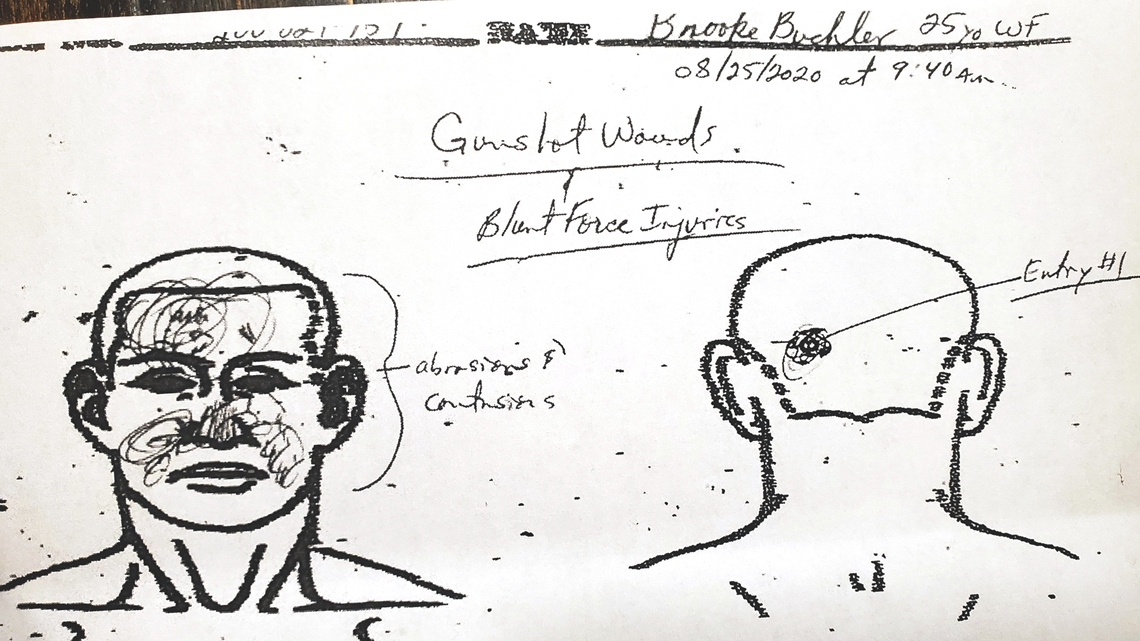 Brooke Buchler 25yo WF
08/25/2020 at 9:40Am
Gunshot Wounds
Blunt Force Injuries
Entry #1
abrasions &
contusions